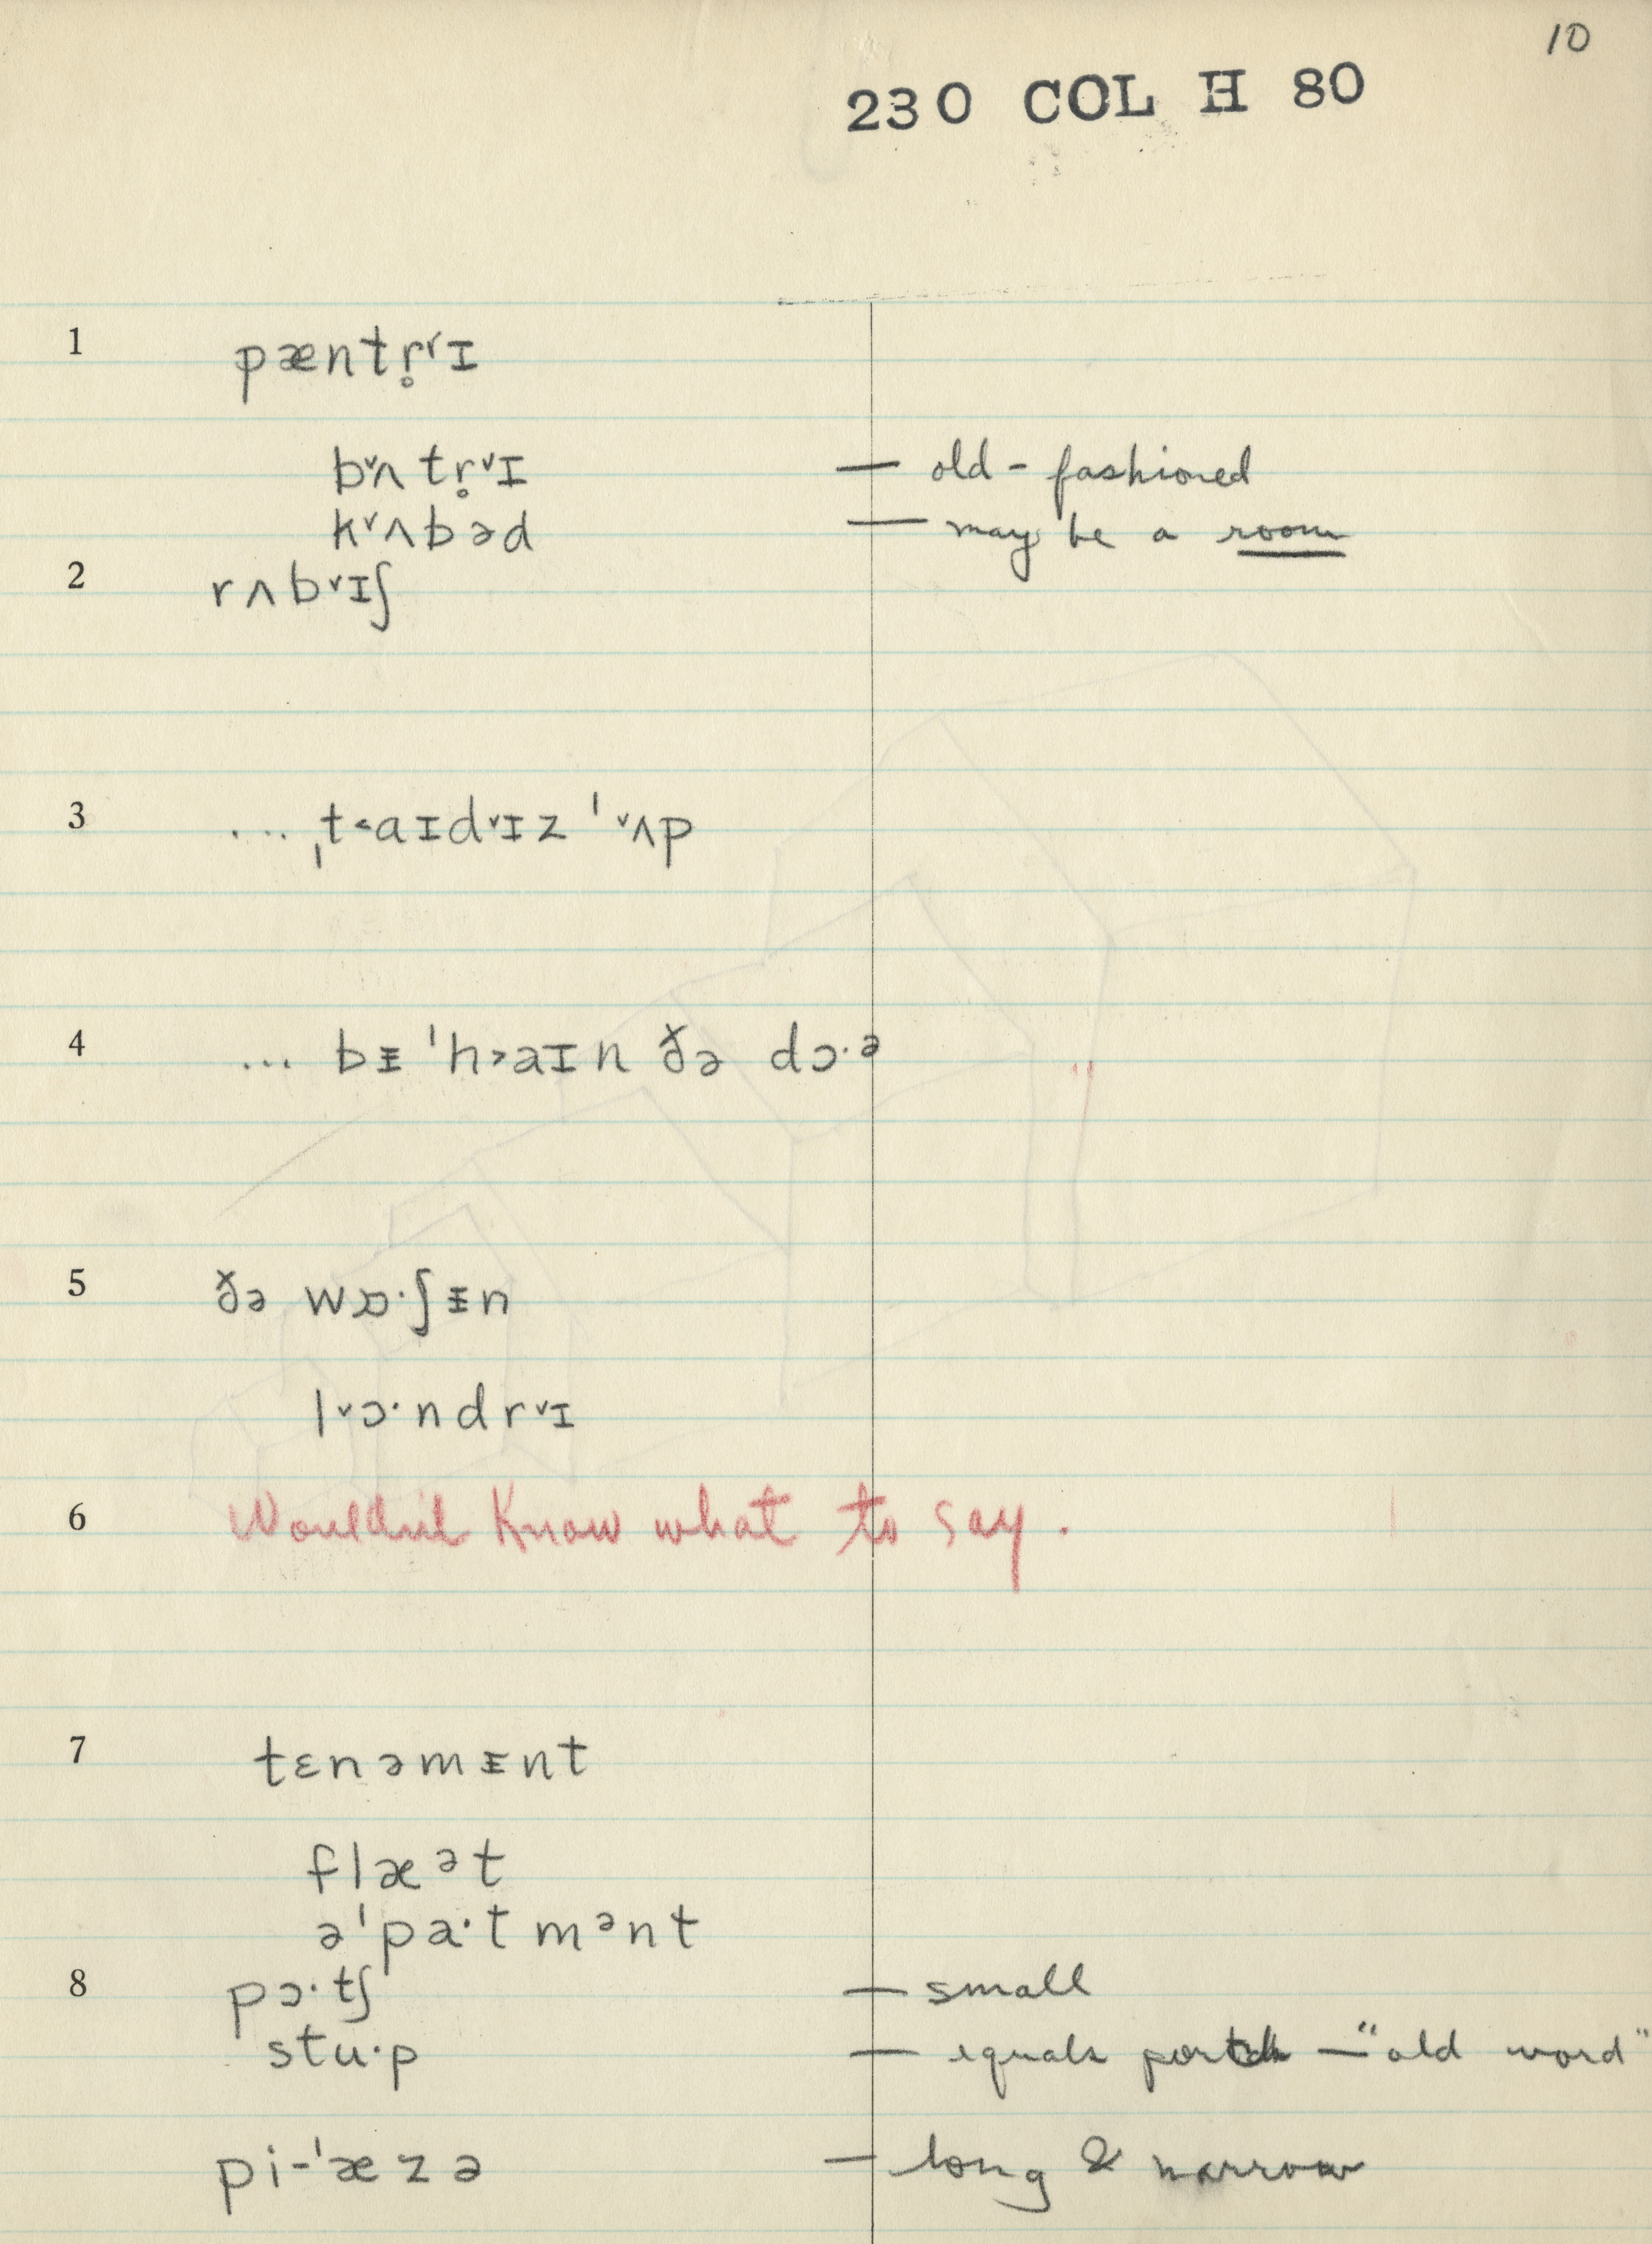 10
230 COL H 80
1 pæntr̥˅ɪ
b˅ʌtr̥˅ɪ — old-fashioned
k˅ʌbəd — may be a room
2 rʌb˅ɪʃ
3 ... ˌt˂aɪd˅ɪz ˈ˅ʌp
4 ... bᵻˈh˃aɪn ðə dɔ·ᵊ
5 ðə wɒ·ʃᵻn
l˅ɔ·ndr˅ɪ
6 Wouldn't Know what to say.
7 tɛnəmᵻnt
flæᵊt
əˈpa·tmᵊnt
8 pɔ·tʃ — small
stu·p — equals porch — "old word"
pi-ˈæzə — long & narrow